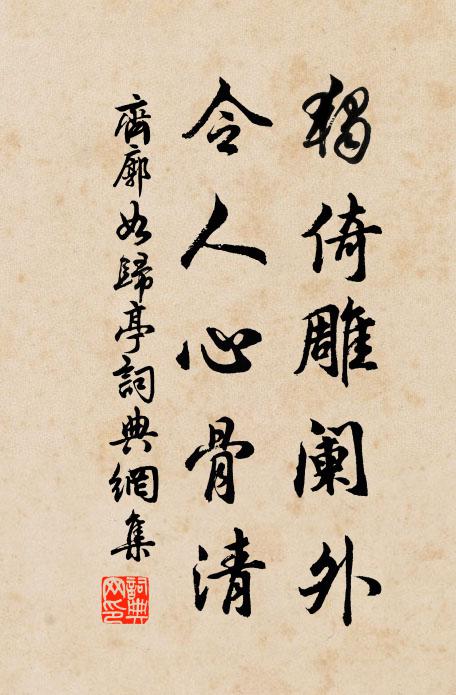 獨倚雕闌外
令人心骨清
齊廓如歸亭詞典網集
詞典網印